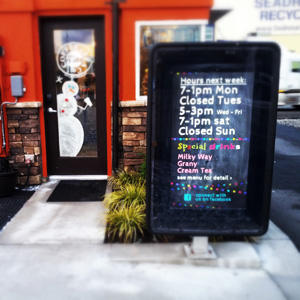 SEADR
RECYC
Hours next week:
7-1pm Mon
Closed Tues
5-3pm Wed - Fri
7-1pm sat
Closed Sun
Special drinks
Milky Way
Grany
Cream Tea
see menu for detail
connect with
us on facebook